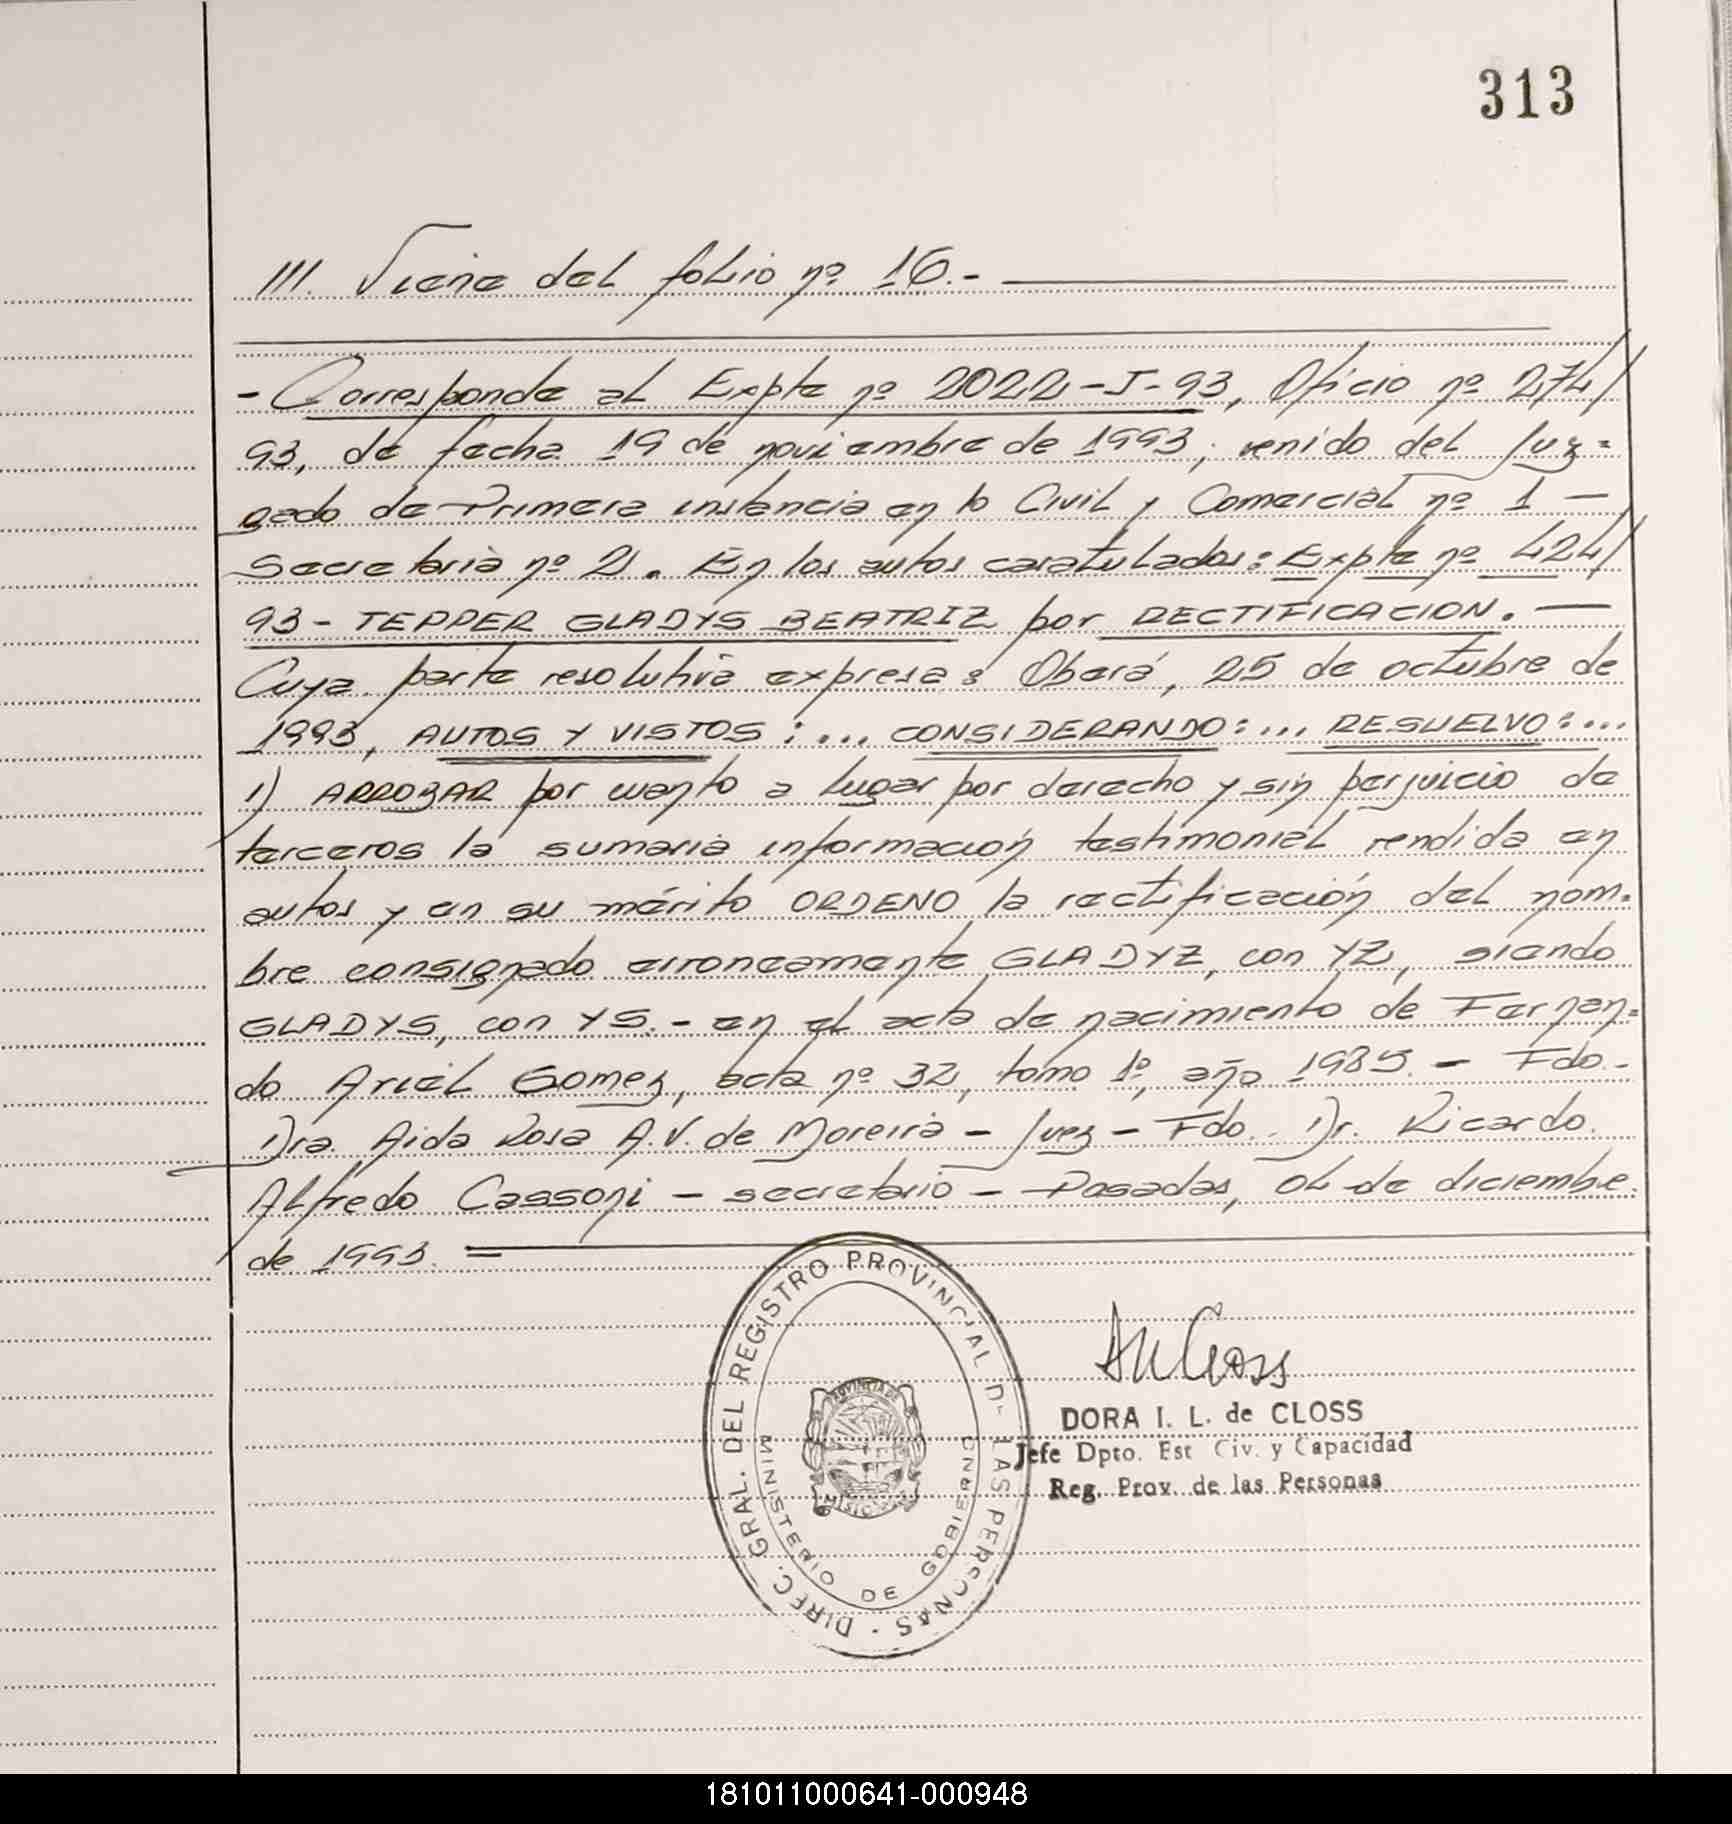 313
III. Viene del folio nº 16.-
- Corresponde al Expte nº 2022-J-93, Oficio nº 274/
93, de fecha 19 de noviembre de 1993, venido del Juz=
gado de Primera instancia en lo Civil y Comercial nº 1 —
Secretaría nº 2. En los autos caratulados: Expte nº 424/
93- TEPPER GLADYS BEATRIZ por RECTIFICACION. —
Cuya parte resolutiva expresa: Oberá, 25 de octubre de
1993, AUTOS Y VISTOS:... CONSIDERANDO:... RESUELVO:...
1) APROBAR por cuanto a lugar por derecho y sin perjuicio de
terceros la sumaria información testimonial rendida en
autos y en su mérito ORDENO la rectificación del nom=
bre consignado erroneamente GLADYZ, con YZ, siendo
GLADYS, con YS.- en el acta de nacimiento de Fernan=
do Ariel Gomez, acta nº 32, tomo 1º, año 1985. - Fdo.-
Dra. Aida Rosa A.V. de Moreira - Juez - Fdo. Dr. Ricardo
Alfredo Cassoni - secretario - Posadas, 04 de diciembre
de 1993. =
DIREC. GRAL. DEL REGISTRO PROVINCIAL DE LAS PERSONAS ·
MINISTERIO DE GOBIERNO
PROVINCIA DE
MISIONES
DORA I. L. de CLOSS
Jefe Dpto. Est Civ. y Capacidad
Reg. Prov. de las Personas
181011000641-000948